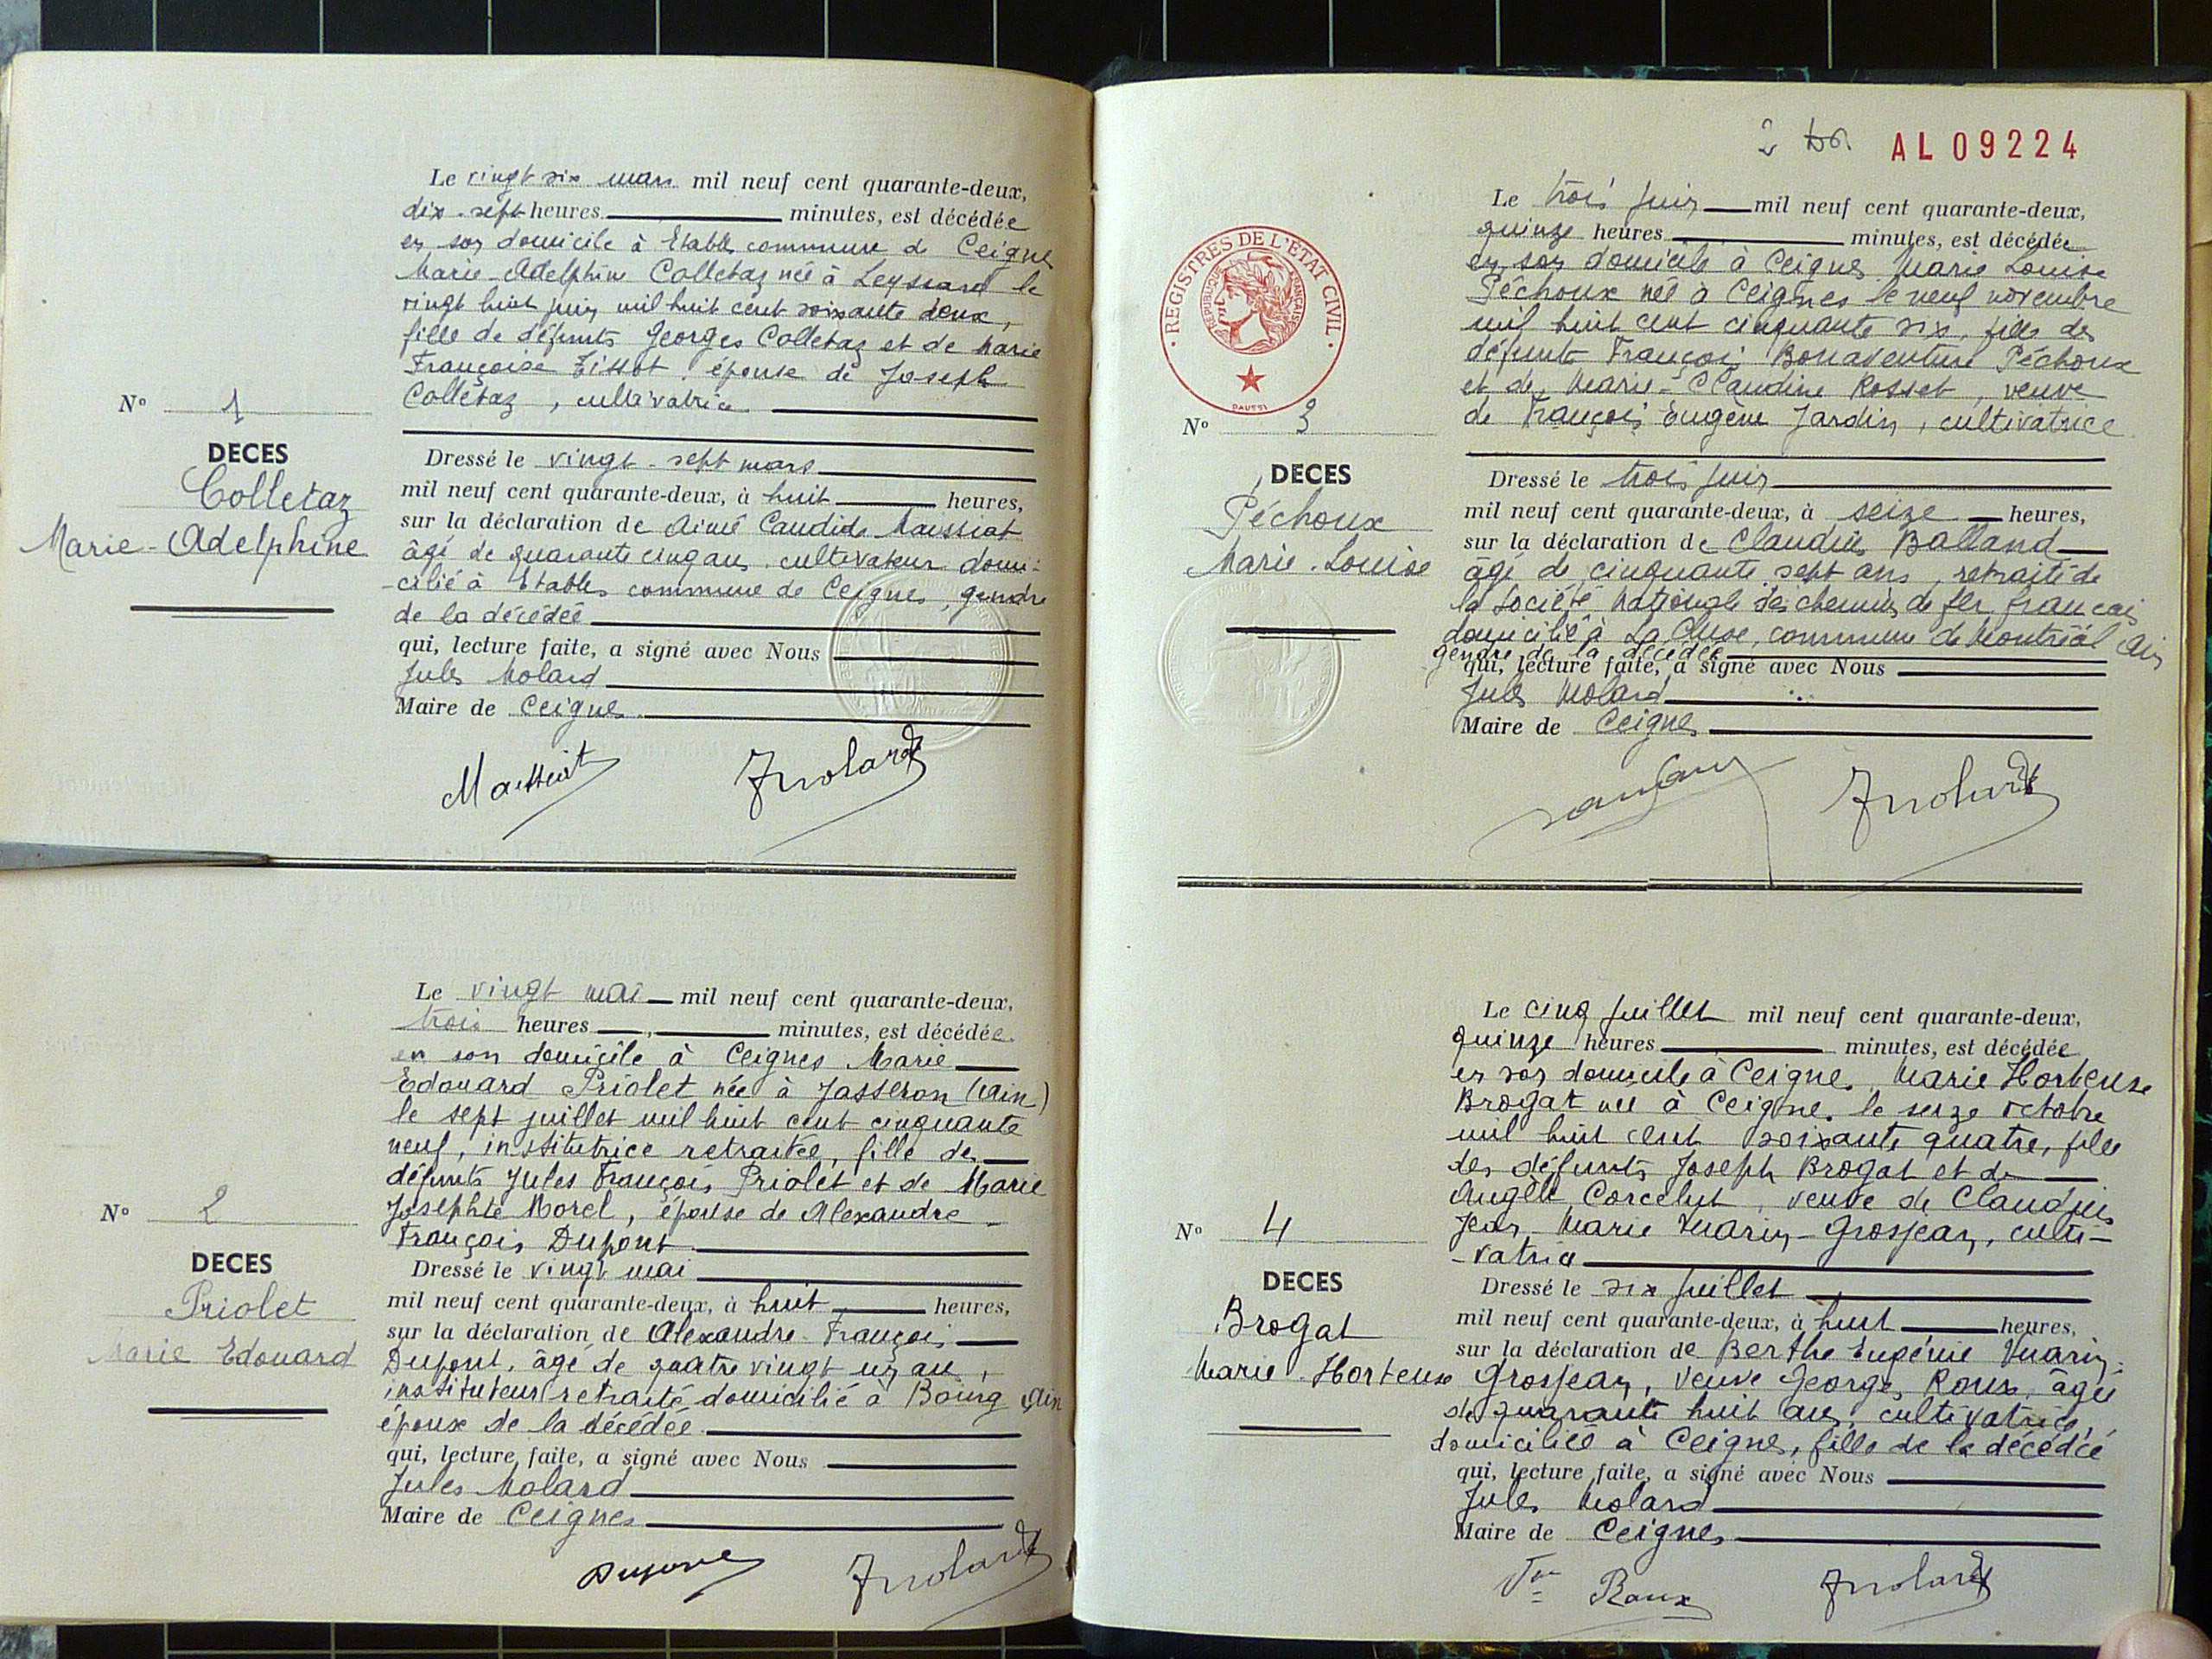 Le vingt six mars mil neuf cent quarante-deux,
dix-sept heures minutes, est décédée
en son domicile à Etables commune de Ceignes
Marie-Adelphine Colletaz née à Leyssard le
vingt huit juin mil huit cent soixante deux,
fille de défunts Georges Colletaz et de Marie
Françoise Tissot, épouse de Joseph
Colletaz, cultivatrice
N° 1
DECES
Colletaz
Marie-Adelphine
Dressé le vingt-sept mars
mil neuf cent quarante-deux, à huit heures,
sur la déclaration de Aimé Candide Maissiat
âgé de quarante cinq ans, cultivateur domi-
-cilié à Etables commune de Ceignes, gendre
de la décédée
qui, lecture faite, a signé avec Nous
Jules Molard
Maire de Ceignes
Maissiat JMolard
Le vingt mai mil neuf cent quarante-deux,
trois heures minutes, est décédée
en son domicile à Ceignes Marie
Edouard Priolet née à Jasseron (Ain)
le sept juillet mil huit cent cinquante
neuf, institutrice retraitée, fille de
défunts Jules François Priolet et de Marie
Josephte Morel, épouse de Alexandre
François Dupont
N° 2
DECES
Priolet
Marie Edouard
Dressé le vingt mai
mil neuf cent quarante-deux, à huit heures,
sur la déclaration de Alexandre François
Dupont, âgé de quatre vingt un ans,
instituteur retraité domicilié à Bourg Ain
époux de la décédée
qui, lecture faite, a signé avec Nous
Jules Molard
Maire de Ceignes
Dupont JMolard
2 AL 09224
Le trois juin mil neuf cent quarante-deux,
quinze heures minutes, est décédée
en son domicile à Ceignes Marie Louise
Péchoux née à Ceignes le neuf novembre
mil huit cent cinquante six, fille de
défunts François Bonaventure Péchoux
et de Marie-Claudine Rosset, veuve
de François Eugène Jardin, cultivatrice
REGISTRES DE L'ÉTAT CIVIL
REPUBLIQUE FRANÇAISE
N° 3
DECES
Péchoux
Marie-Louise
Dressé le trois juin
mil neuf cent quarante-deux, à seize heures,
sur la déclaration de Claudius Balland
âgé de cinquante sept ans, retraité de
la Société Nationale des chemins de fer français
domicilié à La Cluse, commune de Montréal Ain
gendre de la décédée
qui, lecture faite, a signé avec Nous
Jules Molard
Maire de Ceignes
JMolard
Le cinq juillet mil neuf cent quarante-deux,
quinze heures minutes, est décédée
en son domicile à Ceignes Marie Hortense
Brogat née à Ceignes le seize octobre
mil huit cent soixante quatre, fille
des défunts Joseph Brogat et de
Angèle Corcelut, veuve de Claudius
Jean-Marie Vuarin-Grosjean, culti-
-vatrice
N° 4
DECES
Brogat
Marie-Hortense
Dressé le six juillet
mil neuf cent quarante-deux, à huit heures,
sur la déclaration de Berthe Eugénie Vuarin-
Grosjean, veuve Georges Roux, âgée
de quarante huit ans, cultivatrice,
domiciliée à Ceignes, fille de la décédée
qui, lecture faite, a signé avec Nous
Jules Molard
Maire de Ceignes
Vve Roux JMolard